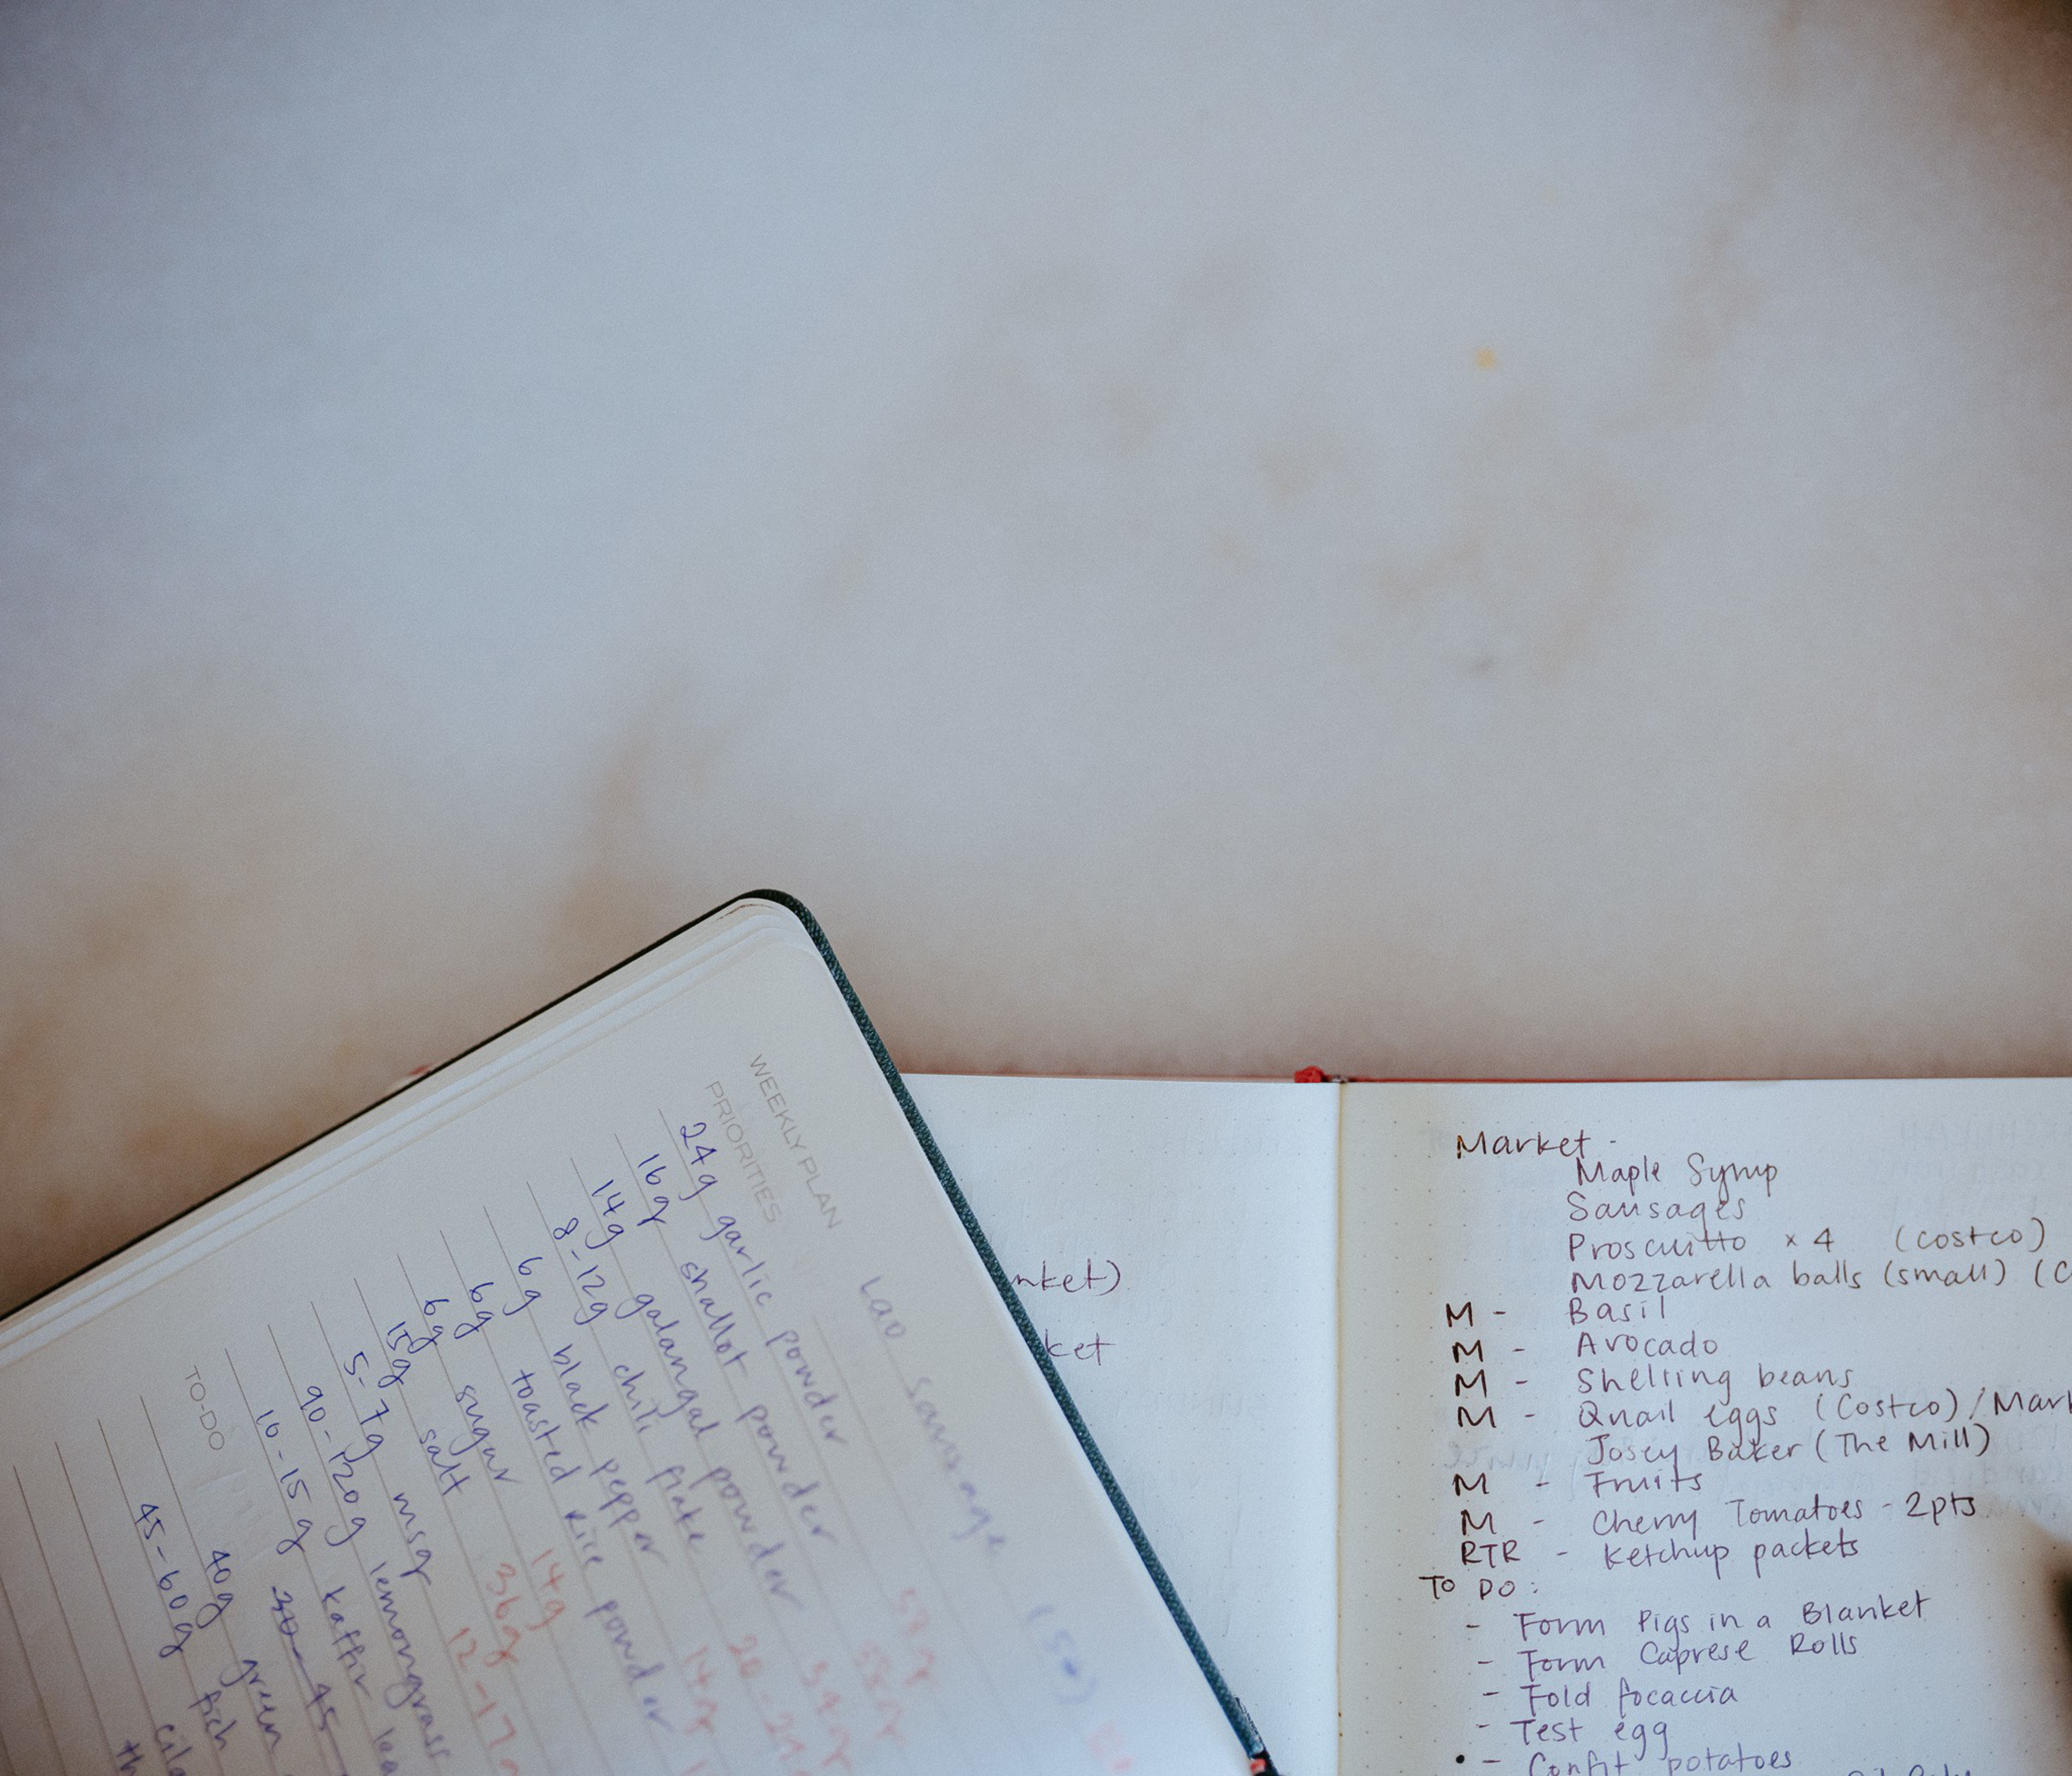 WEEKLY PLAN
PRIORITIES
Lao sausage
24g garlic powder
16g shallot powder
14g galangal powder
8-12g chili flake
6g black pepper
6g toasted rice powder
6g sugar 14g
15g salt 36g
5-7g msg 12-17
90-120g lemongrass
10-15g kaffir
TO-DO
40g green
45-60g fish
nket)
ket
Market -
Maple Syrup
Sausages
Proscuitto x4 (costco)
Mozzarella balls (small) (C
M - Basil
M - Avocado
M - Shelling beans
M - Quail eggs (Costco)/Mark
Josey Baker (The Mill)
M - Fruits
M - Cherry Tomatoes - 2pts
RTR - Ketchup packets
TO DO:
- Form Pigs in a Blanket
- Form Caprese Rolls
- Fold focaccia
- Test egg
• - Confit potatoes